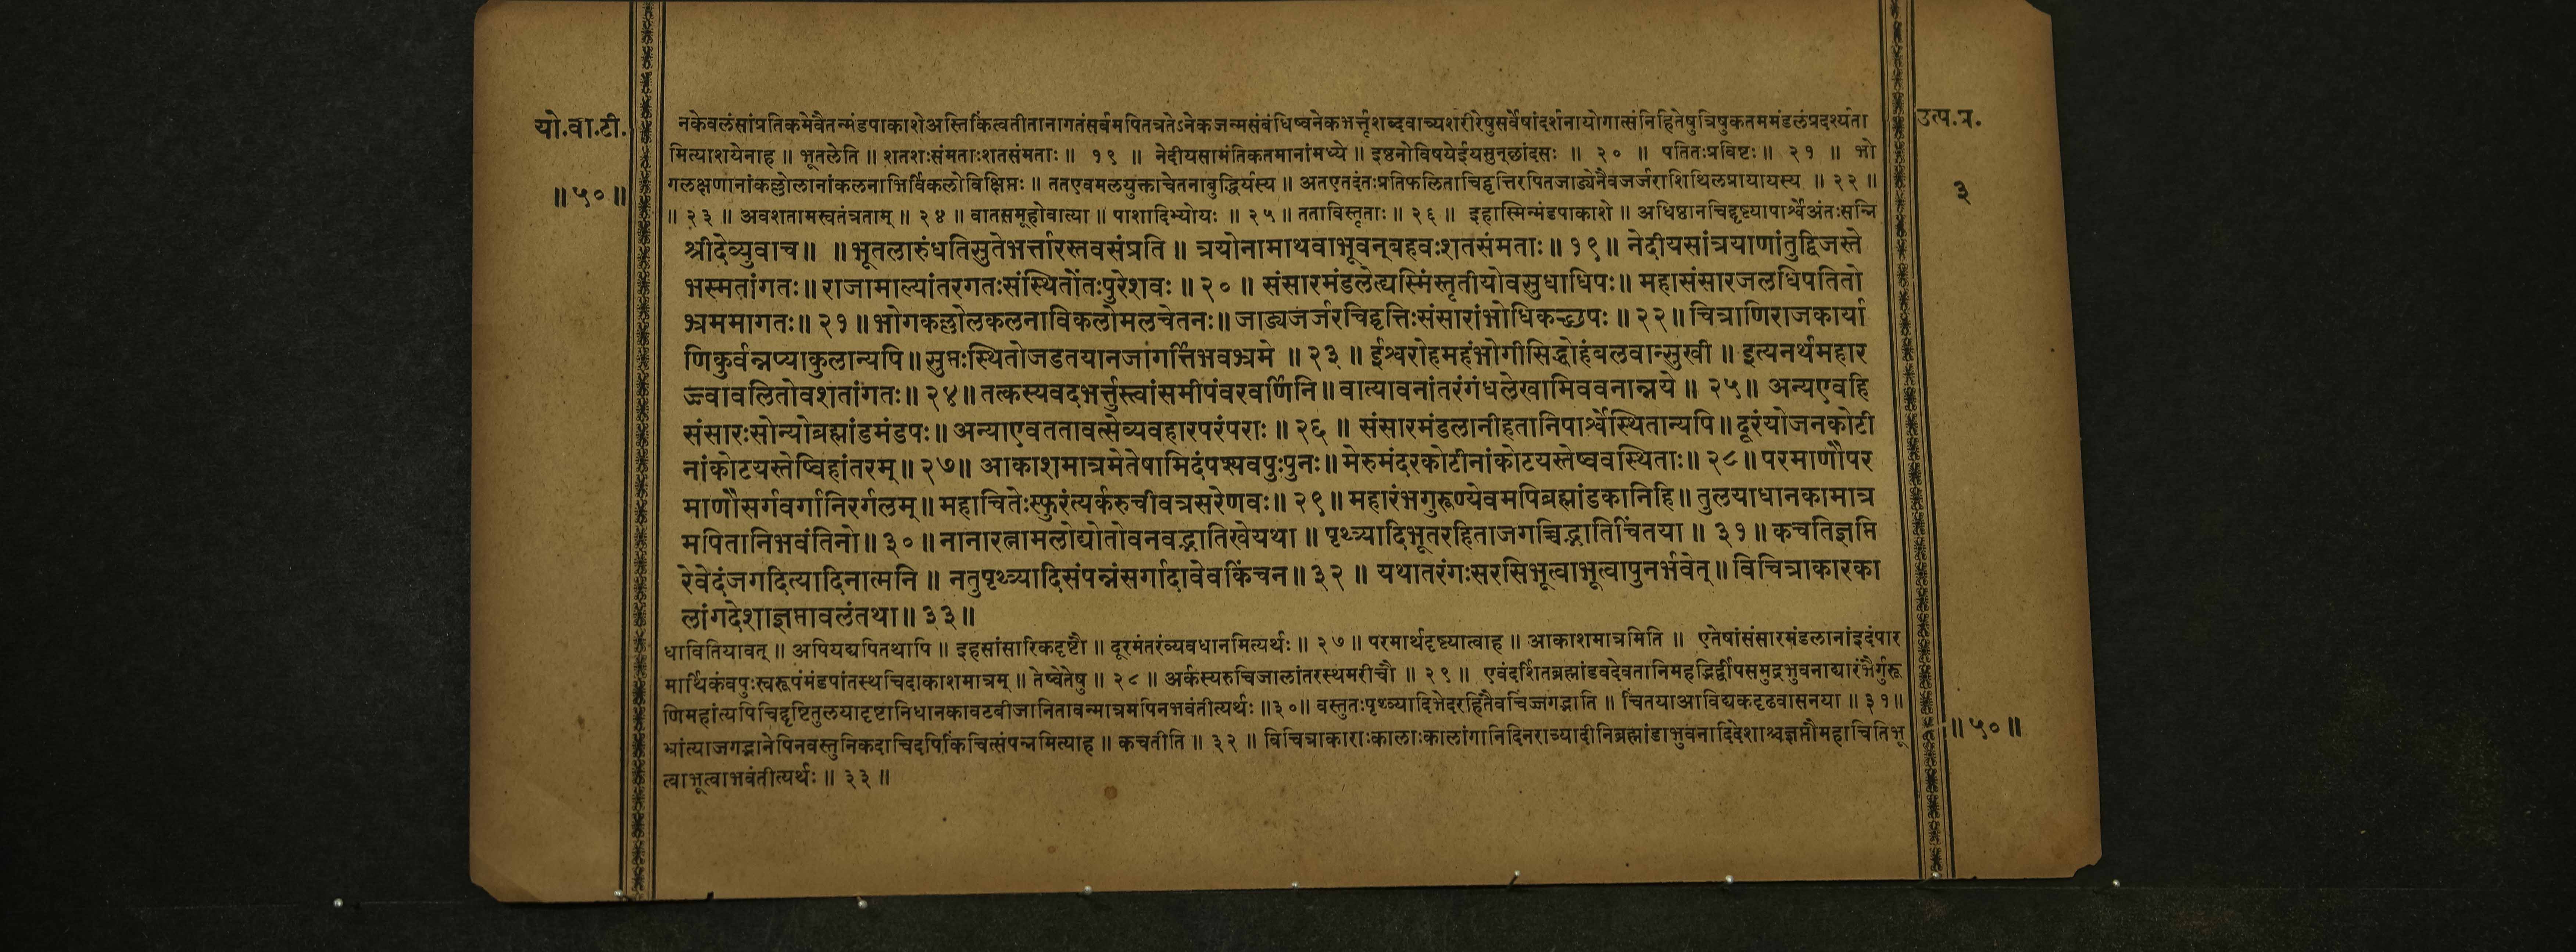 यो.वा.टी.
॥५०॥
नकेवलंसांप्रतिकमेवैतन्मंडपाकाशेअस्तिकिंत्वतीतानागतंसर्वमपितत्रतेऽनेकजन्मसंबंधिष्वनेकभर्तृशब्दवाच्यशरीरेषुसर्वेषांदर्शनायोगात्संनिहितेषुत्रिषुकतममंडलंप्रदर्श्यता
मित्याशयेनाह ॥ भूतलेति ॥ शतशःसंमताःशतसंमताः ॥ १९ ॥ नेदीयसामंतिकतमानांमध्ये ॥ इष्ठनोविषयेईयसुन्छांदसः ॥ २० ॥ पतितःप्रविष्टः ॥ २१ ॥ भो
गलक्षणानांकल्लोलानांकलनाभिर्विकलोविक्षिप्तः ॥ ततएवमलयुक्ताचेतनाबुद्धिर्यस्य ॥ अतएतदंतःप्रतिफलिताचिद्वृत्तिरपितजाड्येनैवजर्जराशिथिलप्रायायस्य ॥ २२ ॥
॥ २३ ॥ अवशतामस्वतंत्रताम् ॥ २४ ॥ वातसमूहोवात्या ॥ पाशादिभ्योयः ॥ २५ ॥ तताविस्तृताः ॥ २६ ॥ इहास्मिन्मंडपाकाशे ॥ अधिष्ठानचिद्दृष्ट्यापार्श्वेअंतःसन्नि
श्रीदेव्युवाच ॥ ॥ भूतलारुंधतिसुतेभर्त्तारस्तवसंप्रति ॥ त्रयोनामाथवाभूवन्बहवःशतसंमताः ॥ १९ ॥ नेदीयसांत्रयाणांतुद्विजस्ते
भस्मतांगतः ॥ राजामाल्यांतरगतःसंस्थितोंतःपुरेशवः ॥ २० ॥ संसारमंडलेत्द्यस्मिंस्तृतीयोवसुधाधिपः ॥ महासंसारजलधिपतितो
भ्रममागतः ॥ २१ ॥ भोगकल्लोलकलनाविकलोमलचेतनः ॥ जाड्यजर्जरचिद्वृत्तिःसंसारांभोधिकच्छपः ॥ २२ ॥ चित्राणिराजकार्या
णिकुर्वन्नप्याकुलान्यपि ॥ सुप्तःस्थितोजडतयानजागर्त्तिभवभ्रमे ॥ २३ ॥ ईश्वरोहमहंभोगीसिद्धोहंबलवान्सुखी ॥ इत्यनर्थमहार
ज्ज्वावलितोवशतांगतः ॥ २४ ॥ तत्कस्यवदभर्त्तुस्त्वांसमीपंवरवर्णिनि ॥ वात्यावनांतरंगंधलेखामिववनान्नये ॥ २५ ॥ अन्यएवहि
संसारःसोन्योब्रह्मांडमंडपः ॥ अन्याएवततावत्सेव्यवहारपरंपराः ॥ २६ ॥ संसारमंडलानीहतानिपार्श्वेस्थितान्यपि ॥ दूरंयोजनकोटी
नांकोटयस्तेष्विहांतरम् ॥ २७ ॥ आकाशमात्रमेतेषामिदंपश्यवपुःपुनः ॥ मेरुमंदरकोटीनांकोटयस्तेष्ववस्थिताः ॥ २८ ॥ परमाणौपर
माणौसर्गवर्गानिरर्गलम् ॥ महाचितेःस्फुरंत्यर्करुचीवत्रसरेणवः ॥ २९ ॥ महारंभगुरूण्येवमपिब्रह्मांडकानिहि ॥ तुलयाधानकामात्र
मपितानिभवंतिनो ॥ ३० ॥ नानारत्नामलोद्योतोवनवद्भातिखेयथा ॥ पृथ्व्यादिभूतरहिताजगच्चिद्भातिचिंतया ॥ ३१ ॥ कचतिज्ञप्ति
रेवेदंजगदित्यादिनात्मनि ॥ नतुपृथ्व्यादिसंपन्नंसर्गादावेवकिंचन ॥ ३२ ॥ यथातरंगःसरसिभूत्वाभूत्वापुनर्भवेत् ॥ विचित्राकारका
लांगदेशाज्ञप्तावलंतथा ॥ ३३ ॥
धावितियावत् ॥ अपियद्यपितथापि ॥ इहसांसारिकदृष्टौ ॥ दूरमंतरंव्यवधानमित्यर्थः ॥ २७ ॥ परमार्थदृष्ट्यात्वाह ॥ आकाशमात्रमिति ॥ एतेषांसंसारमंडलानांइदंपार
मार्थिकंवपुःस्वरूपंमंडपांतस्थचिदाकाशमात्रम् ॥ तेष्वेतेषु ॥ २८ ॥ अर्कस्यरुचिजालांतरस्थमरीचौ ॥ २९ ॥ एवंदर्शितब्रह्मांडवदेवतानिमहद्भिर्द्वीपसमुद्रभुवनाद्यारंभैर्गुरू
णिमहांत्यपिचिद्दृष्टितुलयादृष्टानिधानकावटबीजानितावन्मात्रमपिनभवंतीत्यर्थः ॥३०॥ वस्तुतःपृथ्व्यादिभेदरहितैवचिज्जगद्भाति ॥ चिंतयाआविद्यकदृढवासनया ॥ ३१॥
भ्रांत्याजगद्भानेपिनवस्तुनिकदाचिदपिकिंचित्संपन्नमित्याह ॥ कचतीति ॥ ३२ ॥ विचित्राकाराःकालाःकालांगानिदिनरात्र्यादीनिब्रह्मांडाभुवनादिदेशाश्चज्ञप्तौमहाचितिभू
त्वाभूत्वाभवंतीत्यर्थः ॥ ३३ ॥
उत्प.प्र.
३
॥५०॥